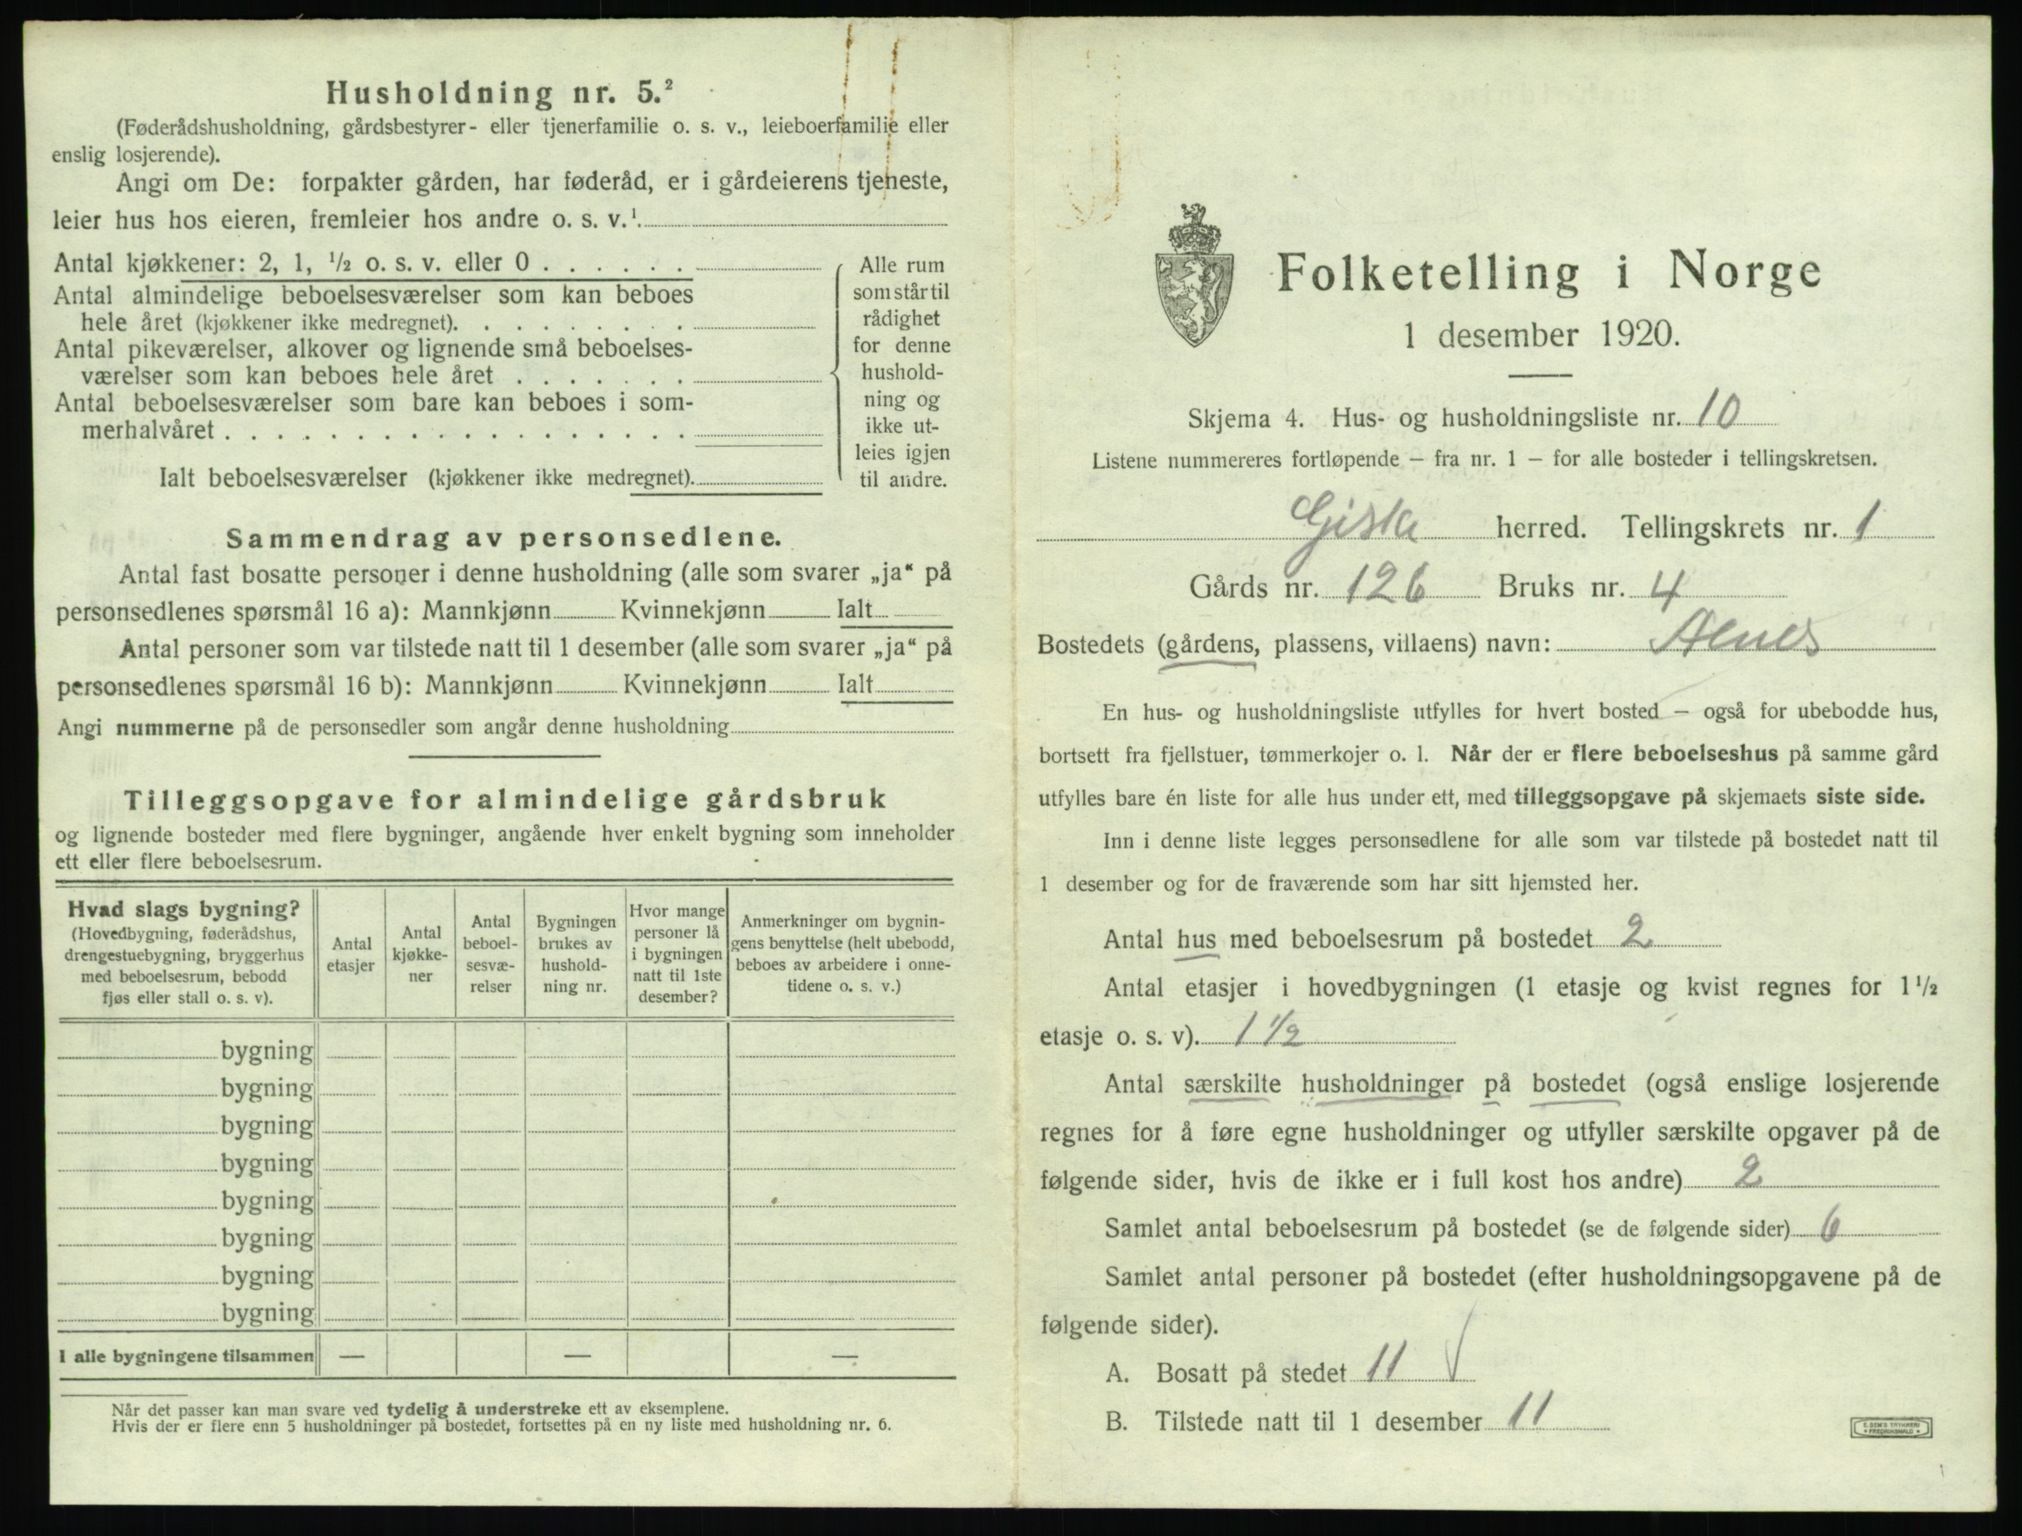 Husholdning nr. 5.²
(Føderådshusholdning, gårdsbestyrer- eller tjenerfamilie o. s. v., leieboerfamilie eller
enslig losjerende).
Angi om De: forpakter gården, har føderåd, er i gårdeierens tjeneste,
leier hus hos eieren, fremleier hos andre o. s. v.¹
Antal kjøkkener: 2, 1, ½ o. s. v. eller 0
Antal almindelige beboelsesværelser som kan beboes
hele året (kjøkkener ikke medregnet).
Antal pikeværelser, alkover og lignende små beboelses-
værelser som kan beboes hele året
Antal beboelsesværelser som bare kan beboes i som-
merhalvåret
Ialt beboelsesværelser (kjøkkener ikke medregnet).
Alle rum
som står til
rådighet
for denne
hushold-
ning og
ikke ut-
leies igjen
til andre.
Sammendrag av personsedlene.
Antal fast bosatte personer i denne husholdning (alle som svarer „ja“ på
personsedlenes spørsmål 16 a): Mannkjønn Kvinnekjønn Ialt
Antal personer som var tilstede natt til 1 desember (alle som svarer „ja“ på
personsedlenes spørsmål 16 b): Mannkjønn Kvinnekjønn Ialt
Angi nummerne på de personsedler som angår denne husholdning
Tilleggsopgave for almindelige gårdsbruk
og lignende bosteder med flere bygninger, angående hver enkelt bygning som inneholder
ett eller flere beboelsesrum.
Hvad slags bygning?
(Hovedbygning, føderådshus,
drengestuebygning, bryggerhus
med beboelsesrum, bebodd
fjøs eller stall o. s. v).
Antal
etasjer
Antal
kjøkke-
ner
Antal
beboel-
sesvæ-
relser
Bygningen
brukes av
hushold-
ning nr.
Hvor mange
personer lå
i bygningen
natt til 1ste
desember?
Anmerkninger om bygnin-
gens benyttelse (helt ubebodd,
beboes av arbeidere i onne-
tidene o. s. v.)
bygning
bygning
bygning
bygning
bygning
bygning
bygning
bygning
I alle bygningene tilsammen — — —
Når det passer kan man svare ved tydelig å understreke ett av eksemplene.
Hvis der er flere enn 5 husholdninger på bostedet, fortsettes på en ny liste med husholdning nr. 6.
Folketelling i Norge
1 desember 1920.
Skjema 4. Hus- og husholdningsliste nr. 10
Listene nummereres fortløpende – fra nr. 1 – for alle bosteder i tellingskretsen.
Giske herred. Tellingskrets nr. 1
Gårds nr. 126 Bruks nr. 4
Bostedets (gårdens, plassens, villaens) navn: Alnes
En hus- og husholdningsliste utfylles for hvert bosted – også for ubebodde hus,
bortsett fra fjellstuer, tømmerkojer o. l. Når der er flere beboelseshus på samme gård
utfylles bare én liste for alle hus under ett, med tilleggsopgave på skjemaets siste side.
Inn i denne liste legges personsedlene for alle som var tilstede på bostedet natt til
1 desember og for de fraværende som har sitt hjemsted her.
Antal hus med beboelsesrum på bostedet 2
Antal etasjer i hovedbygningen (1 etasje og kvist regnes for 1½
etasje o. s. v). 1½
Antal særskilte husholdninger på bostedet (også enslige losjerende
regnes for å føre egne husholdninger og utfyller særskilte opgaver på de
følgende sider, hvis de ikke er i full kost hos andre) 2
Samlet antal beboelsesrum på bostedet (se de følgende sider) 6
Samlet antal personer på bostedet (efter husholdningsopgavene på de
følgende sider).
A. Bosatt på stedet 11 √
B. Tilstede natt til 1 desember 11
E. SEM'S TRYKKERI
• FREDRIKSHALD •